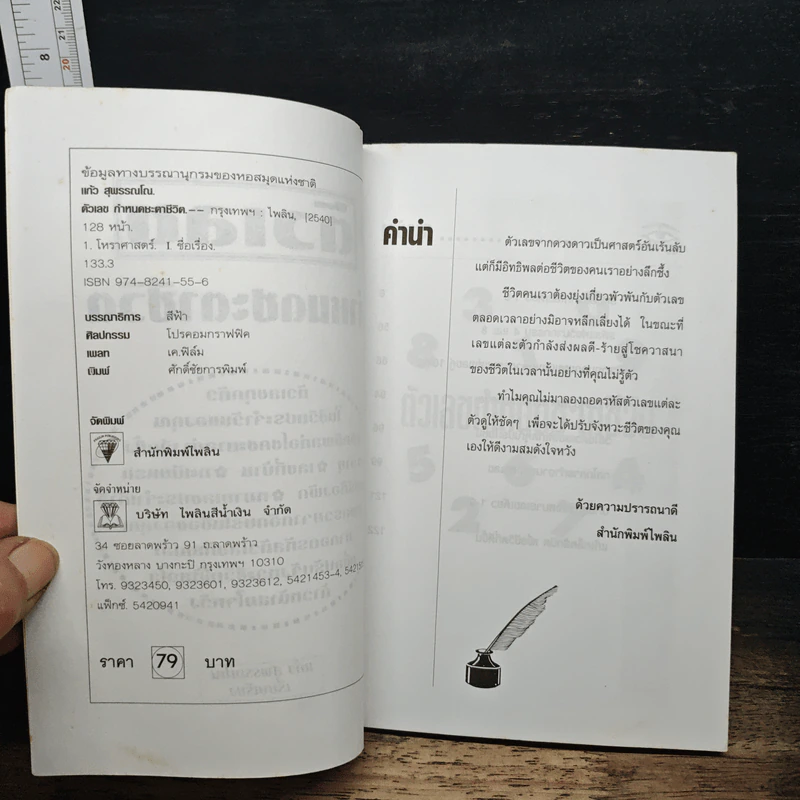 ข้อมูลทางบรรณานุกรมของหอสมุดแห่งชาติ
แก้ว สุพรรณโณ.
ตัวเลข กำหนดชะตาชีวิต.-- กรุงเทพฯ : ไพลิน, [2540]
128 หน้า.
1. โหราศาสตร์. I. ชื่อเรื่อง.
133.3
ISBN 974-8241-55-6
บรรณาธิการ สีฟ้า
ศิลปกรรม โปรคอมกราฟฟิค
เพลท เค.ฟิล์ม
พิมพ์ ศักดิ์ชัยการพิมพ์
จัดพิมพ์
สำนักพิมพ์ไพลิน
จัดจำหน่าย
บริษัท ไพลินสีน้ำเงิน จำกัด
34 ซอยลาดพร้าว 91 ถ.ลาดพร้าว
วังทองหลาง บางกะปิ กรุงเทพฯ 10310
โทร. 9323450, 9323601, 9323612, 5421453-4,
แฟ็กซ์. 5420941
ราคา 79 บาท
คำนำ
ตัวเลขจากดวงดาวเป็นศาสตร์อันเร้นลับ
แต่ก็มีอิทธิพลต่อชีวิตของคนเราอย่างลึกซึ้ง
ชีวิตคนเราต้องยุ่งเกี่ยวพัวพันกับตัวเลข
ตลอดเวลาอย่างมิอาจหลีกเลี่ยงได้ ในขณะที่
เลขแต่ละตัวกำลังส่งผลดี-ร้ายสู่โชควาสนา
ของชีวิตในเวลานั้นอย่างที่คุณไม่รู้ตัว
ทำไมคุณไม่มาลองถอดรหัสตัวเลขแต่ละ
ตัวดูให้ชัดๆ เพื่อจะได้ปรับจังหวะชีวิตของคุณ
เองให้ดีงามสมดังใจหวัง
ด้วยความปรารถนาดี
สำนักพิมพ์ไพลิน
8
22
21
20